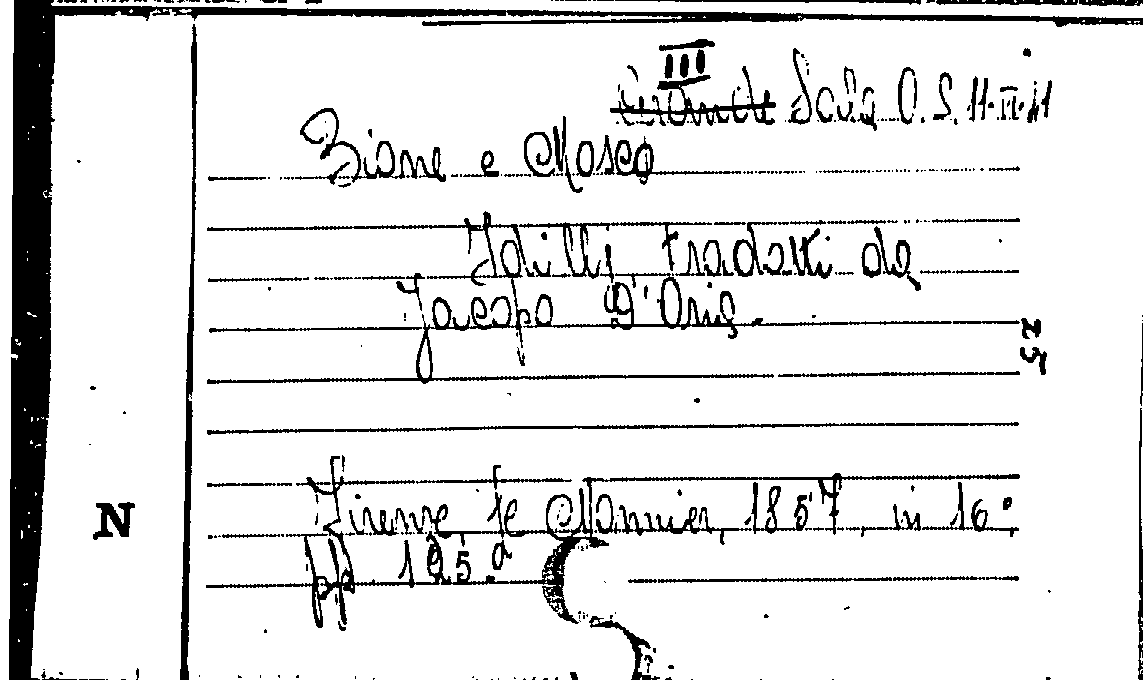 III
Sala O. S. 11. II. 41
Bione e Mosco
Idilli tradotti da
Jacopo D'Oria.
25
Firenze Le Monnier, 1857, in 16°
N
pp. 125.